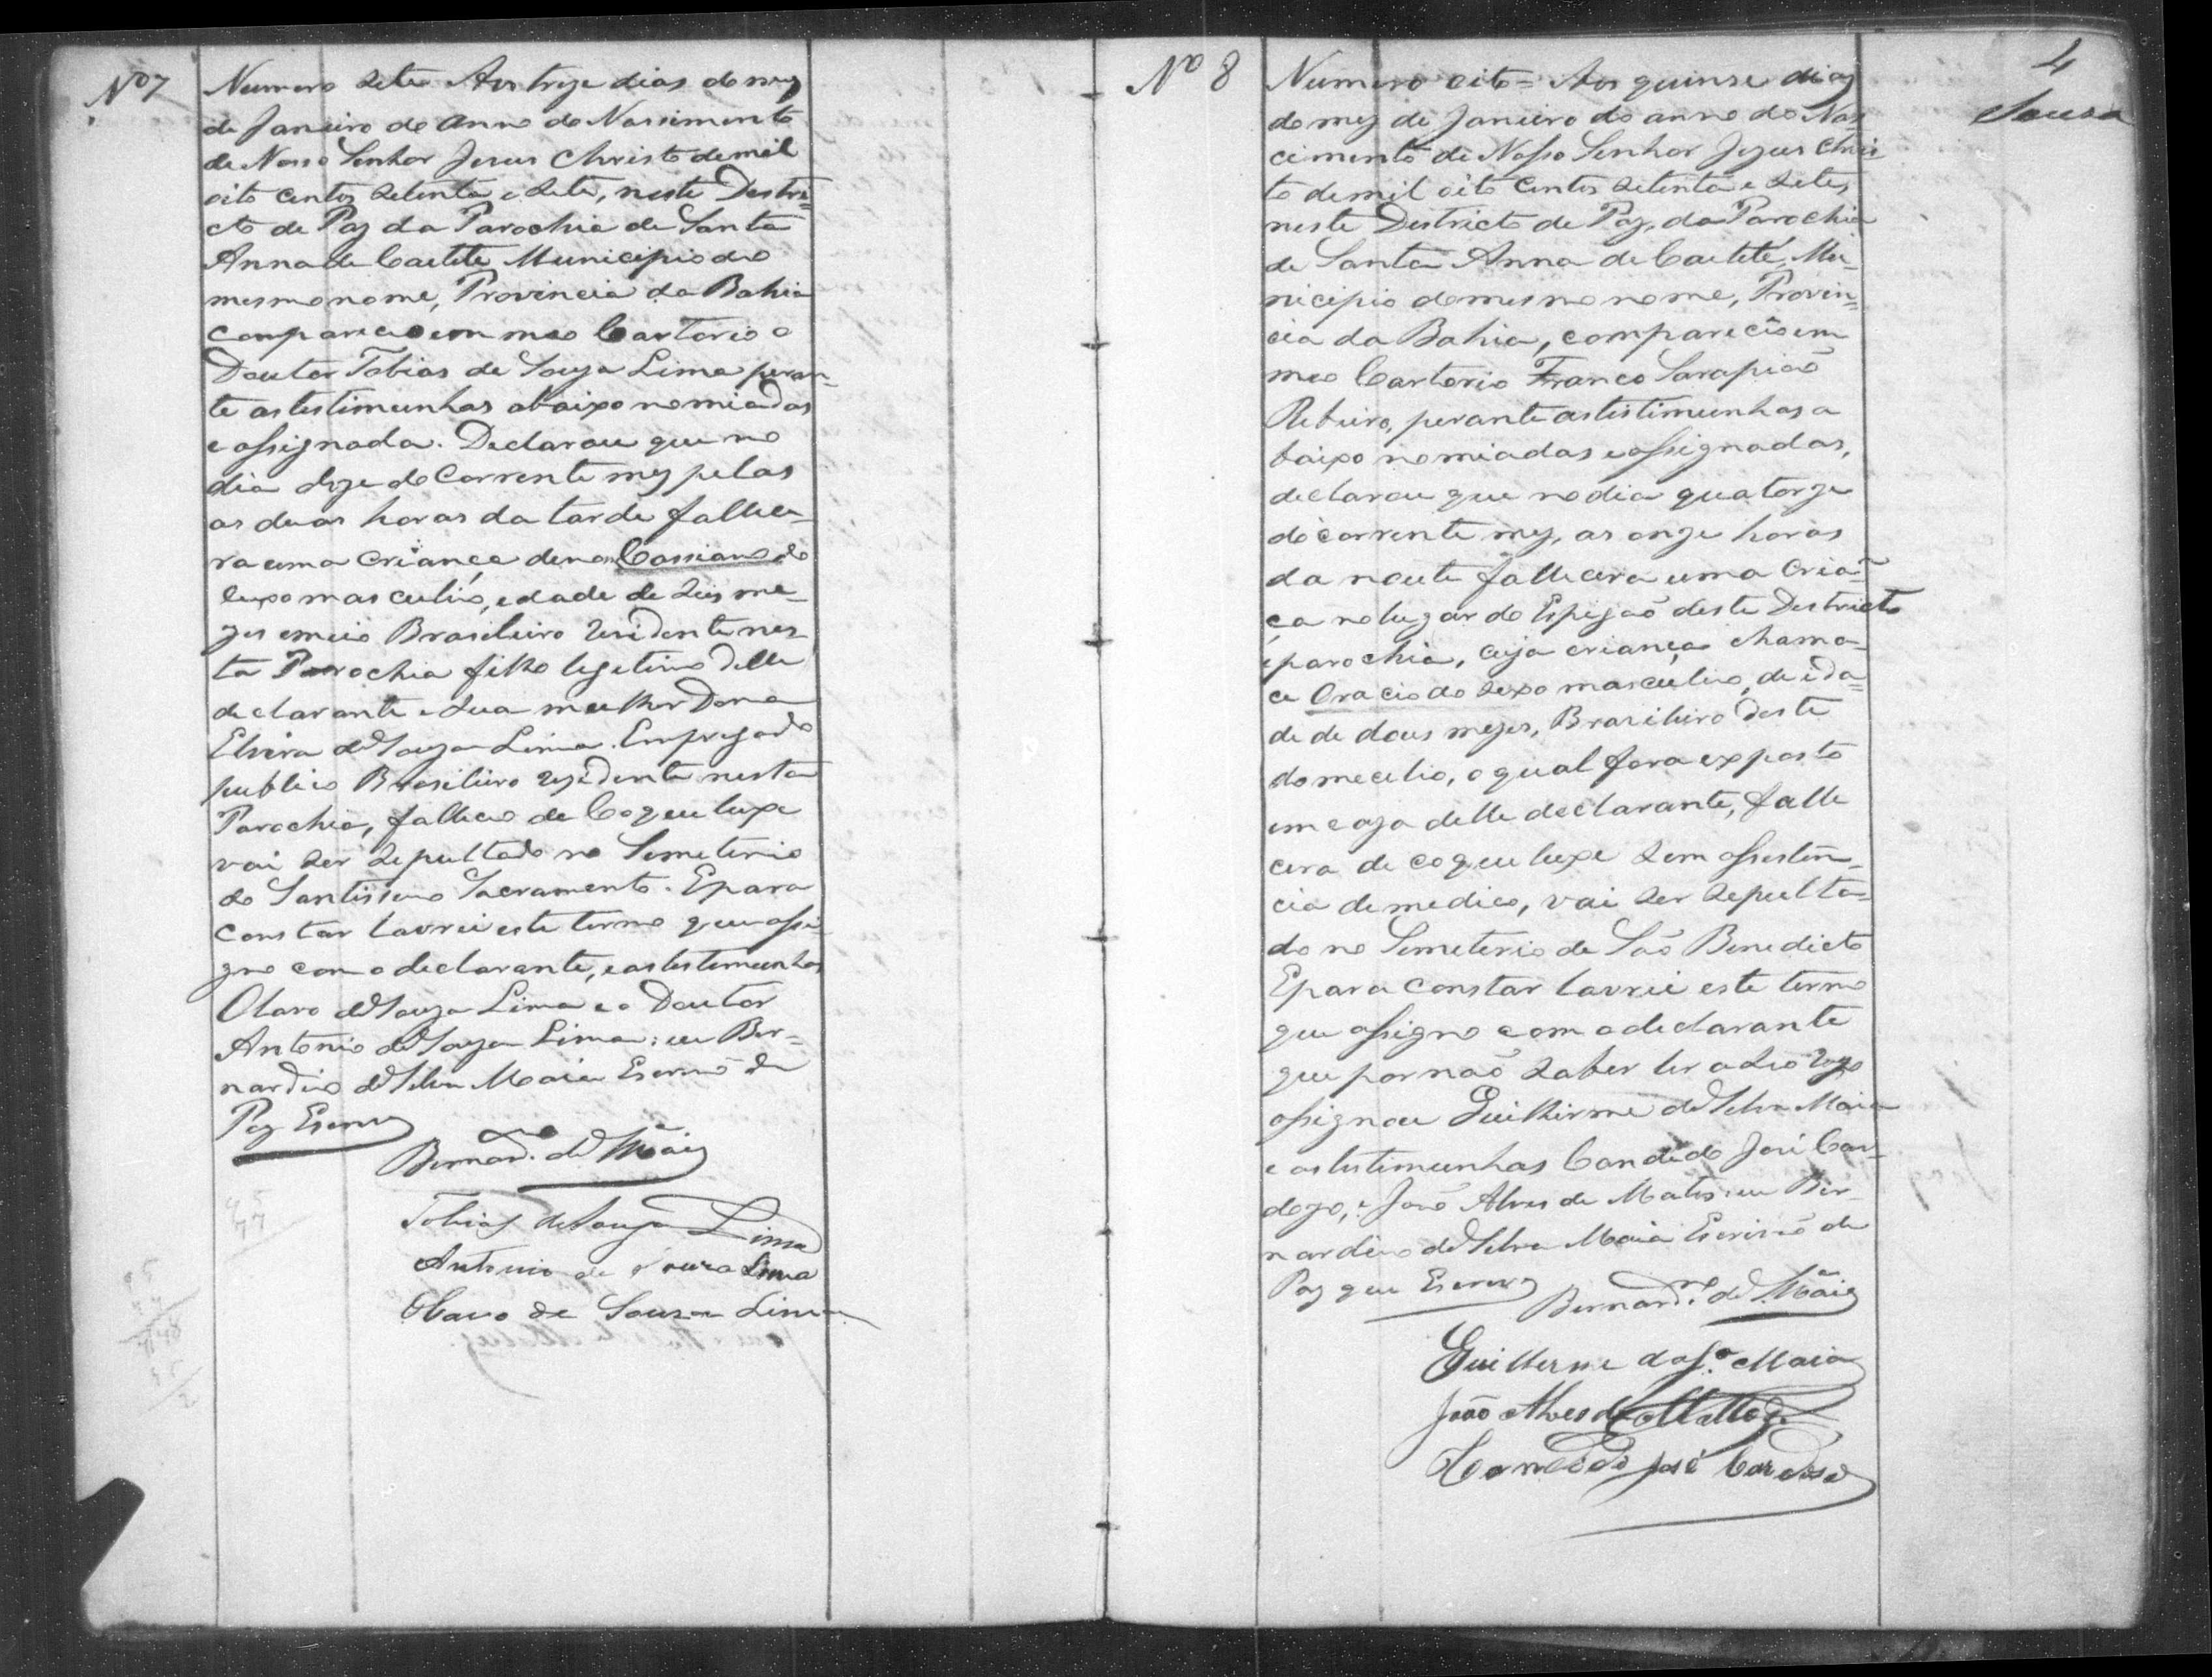 Nº 7
Numero sete Aos treze dias do mez
de Janeiro do Anno do Nascimento
de Nosso Senhor Jesus Christo de mil
oito centos setenta e sete, neste Destri=
cto de Paz da Parochia de Santa
Anna de Caetete Municipio do
mesmo nome, Provincia da Bahia
compareceo em meo Cartorio o
Doutor Tobias de Souza Lima peran=
te as testimunhas abaixo nomiadas
e assignada. Declarou que no
dia doze do Corrente mez pelas
as duas horas da tarde fallece=
ra uma criança de no Cassiano do
sexo masculino, edade de seis me=
zes e meio Brasileiro residente nes=
ta Parochia filho legetimo delle
declarante e sua mulher Dona
Elvira de Souza Lima. Empregado
publico Brasileiro rezidente nesta
Parochia, falleceo de Coqueluxe
vai ser sepultado no Semeterio
do Santissimo Sacramento. E para
constar lavrei este termo que assi=
gno com o declarante, e as testemunhas
Olavo de Souza Lima e o Doutor
Antonio de Souza Lima; eu Ber=
nardino da Silva Maia Escrivão de
Paz Escrevi
Bernardno da Sa Maia
Tobias de Souza Lima
Antonio de Souza Lima
Olavo de Souza Lima
4
Sousa
Nº 8
Numero oito = Aos quinse dias
do mez de Janeiro do anno do Nas=
cimento de Nosso Senhor Jezus Chris=
to de mil oito centos setenta e sete,
neste Districto de Paz, da Parochia
de Santa Anna de Caeteté, Mu=
nicipio do mesmo nome, Provin=
cia da Bahia, compareceo em
meo Cartorio Franco Sarapião
Ribeiro, perante as testimunhas a
baixo nomiadas e assignadas,
declarou que no dia quatorze
do corrente mez, as onze horas
da noute fallecera uma Crian=
ça no lugar do Espigão deste Destricto
e parochia, cuja criança chama=
ce Oracio do sexo masculino, de ida=
de de dous mezes, Brasileiro deste
domecilio, o qual fora exposto
em caza delle declarante, falle
cera de coqueluxe sem assisten=
cia de medico, vai ser sepulta=
do no Semeterio de São Benedicto
E para constar lavrei este termo
que assigno com o declarante
que por não saber ler a seo rogo
assignou Guilherme da Silva Maia
e as testimunhas Candido José Car=
dozo, e João Alves de Matos: eu Ber=
nardino da Silva Maia Escrivão de
Paz que Escrevi
Bernardno da Sa Maia
Guilherme da Sa Maia
João Alves de Mattos
Candido José Cardoso